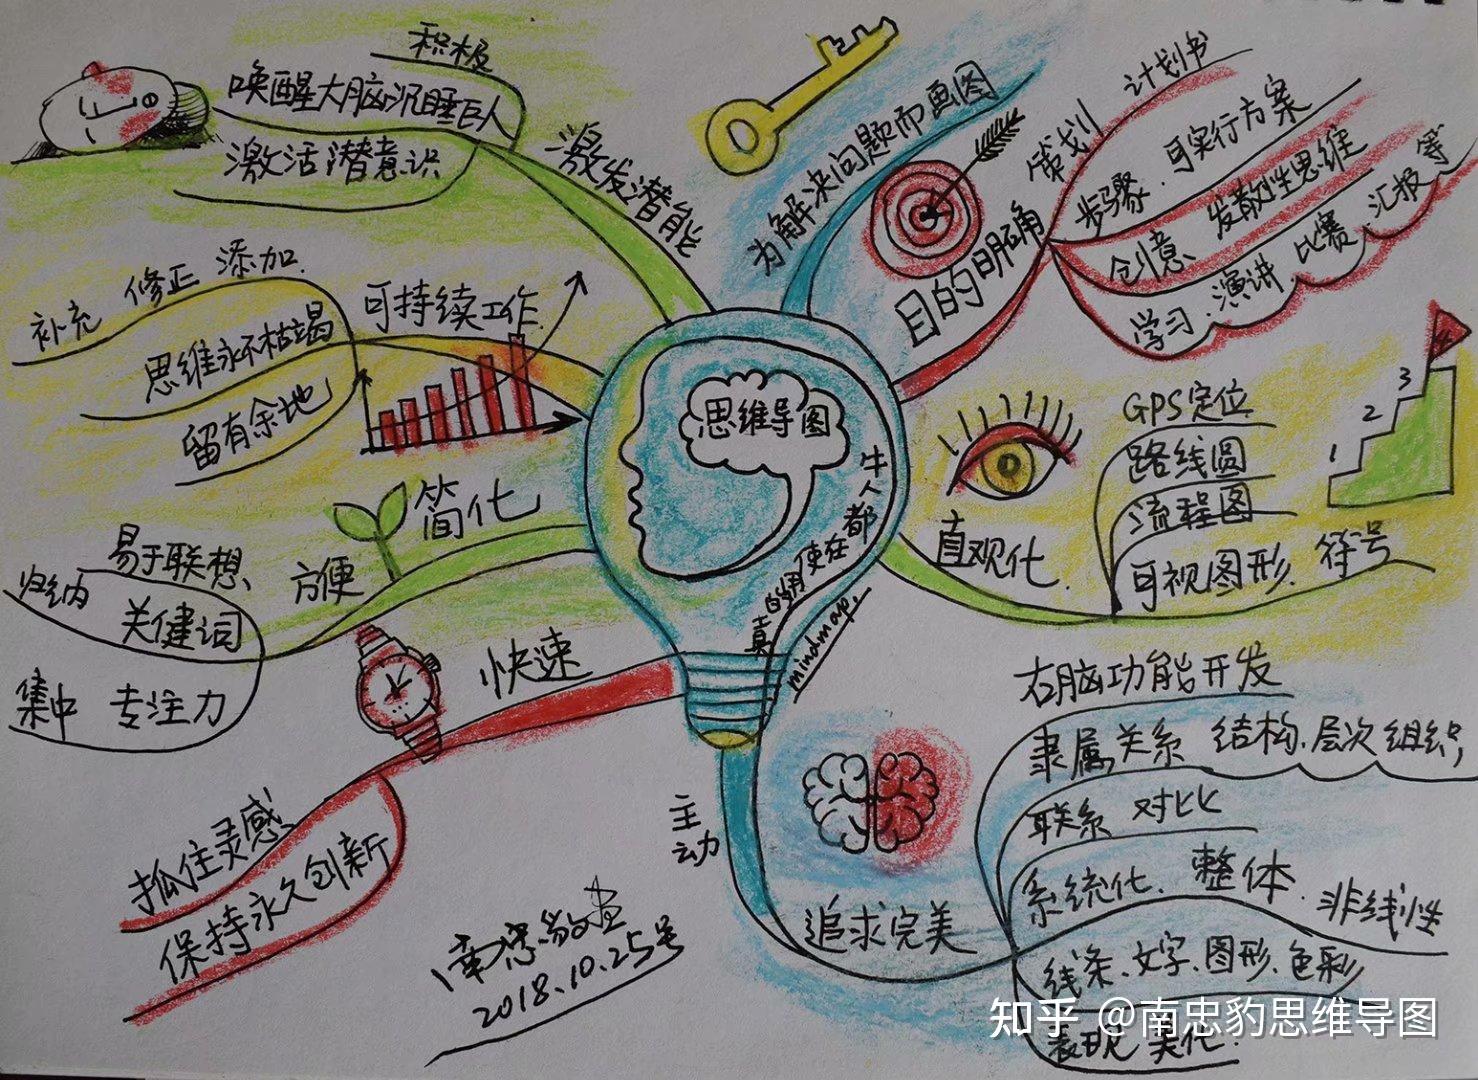 思维导图
牛人都在使用的
真
mindmap.
为解决问题而画图
目的明确
策划 计划书
步骤、可实行方案
创意、发散性思维
学习、演讲 比赛、汇报 等
直观化.
GPS定位
路线圆
流程图
可视图形、符号
1
2
3
主动
追求完美
右脑功能开发
隶属关系 结构、层次 组织
联系 对比
系统化、整体、非线性
线条、文字、图形、色彩
表现 美化.
快速
抓住灵感
保持永久创新
简化
方便
易于联想、
归纳 关健词
集中 专注力
可持续工作
补充 修正 添加
思维永不枯竭
留有余地
激发潜能
积极
唤醒大脑沉睡巨人
激活潜意识
2018.10.25号
知乎 @南忠豹思维导图